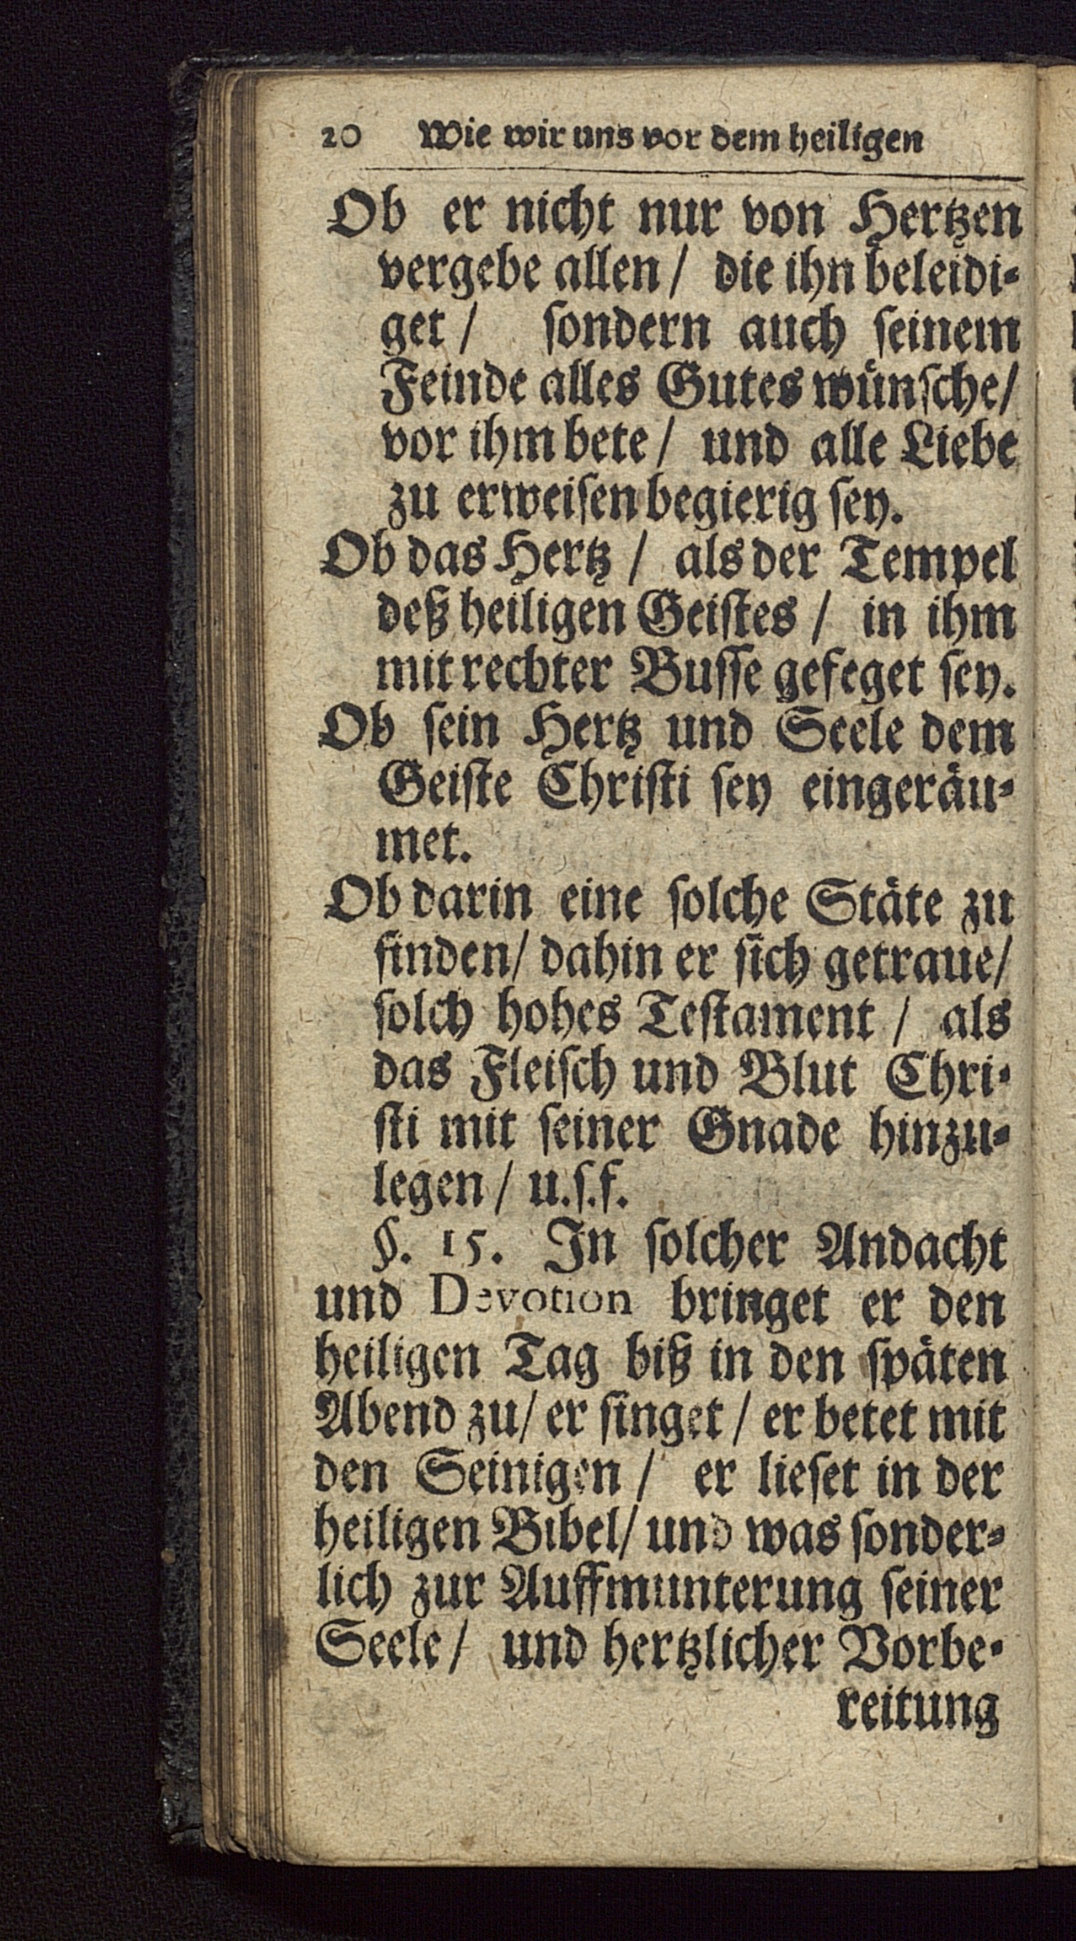 20 Wie wir uns vor dem heiligen
Ob er nicht nur von Hertzen
vergebe allen / die ihn beleidi-
get / sondern auch seinem
Feinde alles Gutes wünsche/
vor ihm bete / und alle Liebe
zu erweisen begierig sey.
Ob das Hertz / als der Tempel
deß heiligen Geistes / in ihm
mit rechter Busse gefeget sey.
Ob sein Hertz und Seele dem
Geiste Christi sey eingeräu-
met.
Ob darin eine solche Stäte zu
finden/ dahin er sich getraue/
solch hohes Testament / als
das Fleisch und Blut Chri-
sti mit seiner Gnade hinzu-
legen / u.s.f.
§. 15. In solcher Andacht
und Devotion bringet er den
heiligen Tag biß in den späten
Abend zu/ er singet / er betet mit
den Seinigen / er lieset in der
heiligen Bibel/ und was sonder-
lich zur Auffmunterung seiner
Seele/ und hertzlicher Vorbe-
reitung